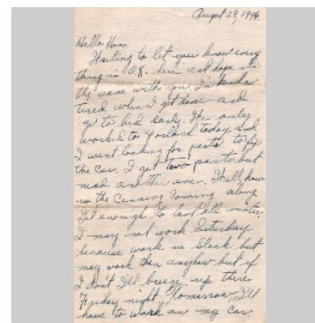 August 29, 1946
Hello Hon,
Writing to let you know every
thing is O.K. here and hope its
the same with you. I'm kinda
tired when I get home and
go to bed early. We only
worked to 4 oclock today and
I went looking for parts to fix
the car. I got two parts but
need another one. Well how
is the canning coming along
Get enough to last all winter.
I may not work Saturday
because work is slack but
may work then anyhow but if
I don't I'll breeze up there
Friday night. Tomorrow I'll
have to work on my car